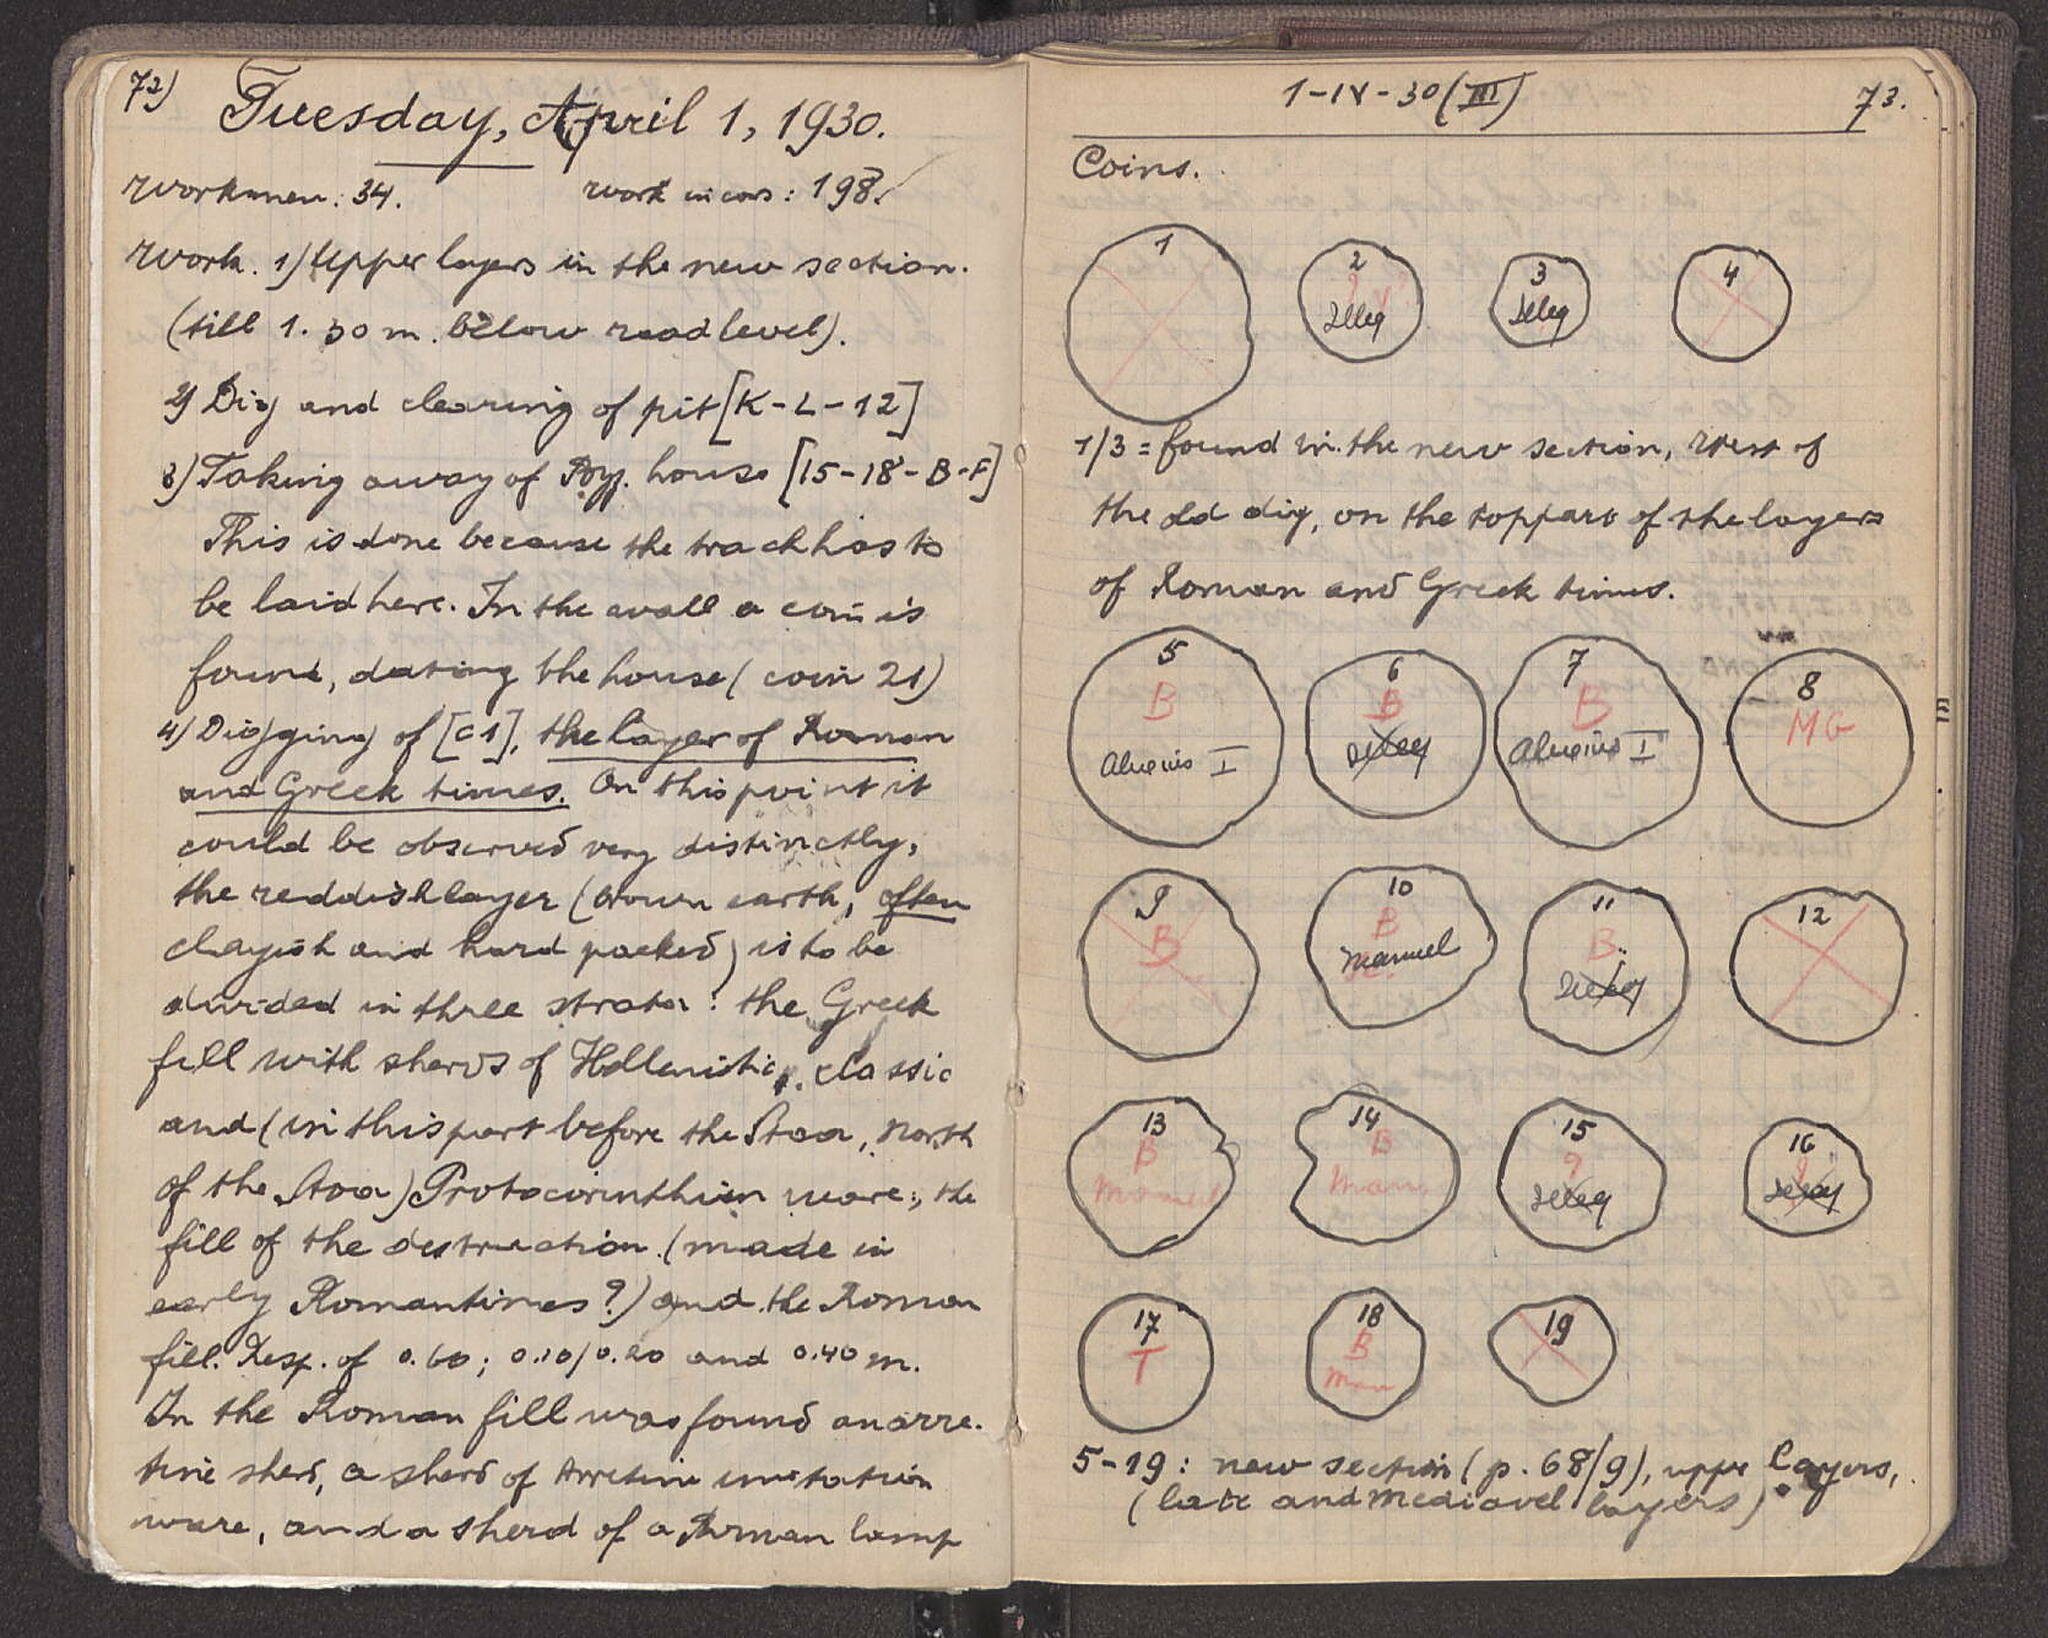 72)
Tuesday, April 1, 1930.
Workmen: 34. Work in cars: 198.
Work. 1) Upper layers in the new section.
(till 1.30 m. below road level).
2) Dig and clearing of pit [K-L-12]
3) Taking away of Byz. house [15-18-B-F]
This is done because the track has to
be laid here. In the wall a coin is
found, dating the house (coin 21)
4) Digging of [C1], the layer of Roman
and Greek times. On this point it
could be observed very distinctly,
the reddish layer (brown earth, often
clayish and hard packed) is to be
divided in three strata: the Greek
fill with sherds of Hellenistic, classic
and (in this part before the Stoa, North
of the Stoa) Protocorinthian ware; the
fill of the destruction (made in
early Roman times?) and the Roman
fill. Resp. of 0.60; 0.10/0.20 and 0.40 m.
In the Roman fill was found an arre-
tine sherd, a sherd of Arretine imitation
ware, and a sherd of a Roman lamp
1-IV-30 (III) 73.
Coins.
1 2 3 4
? 
Illeg Illeg
1/3 = found in the new section, West of
the old dig, on the top part of the layers
of Roman and Greek times.
5 6 7 8
B B B MG
Alexius I Illeg Alexius I
9 10 11 12
B B B
Manuel Illeg
13 14 15 16
B B ? ?
Manuel Man. Illeg Illeg
17 18 19
T B
Man
5-19: new section (p. 68/9), upper layers,
(late and mediavel layers).
III